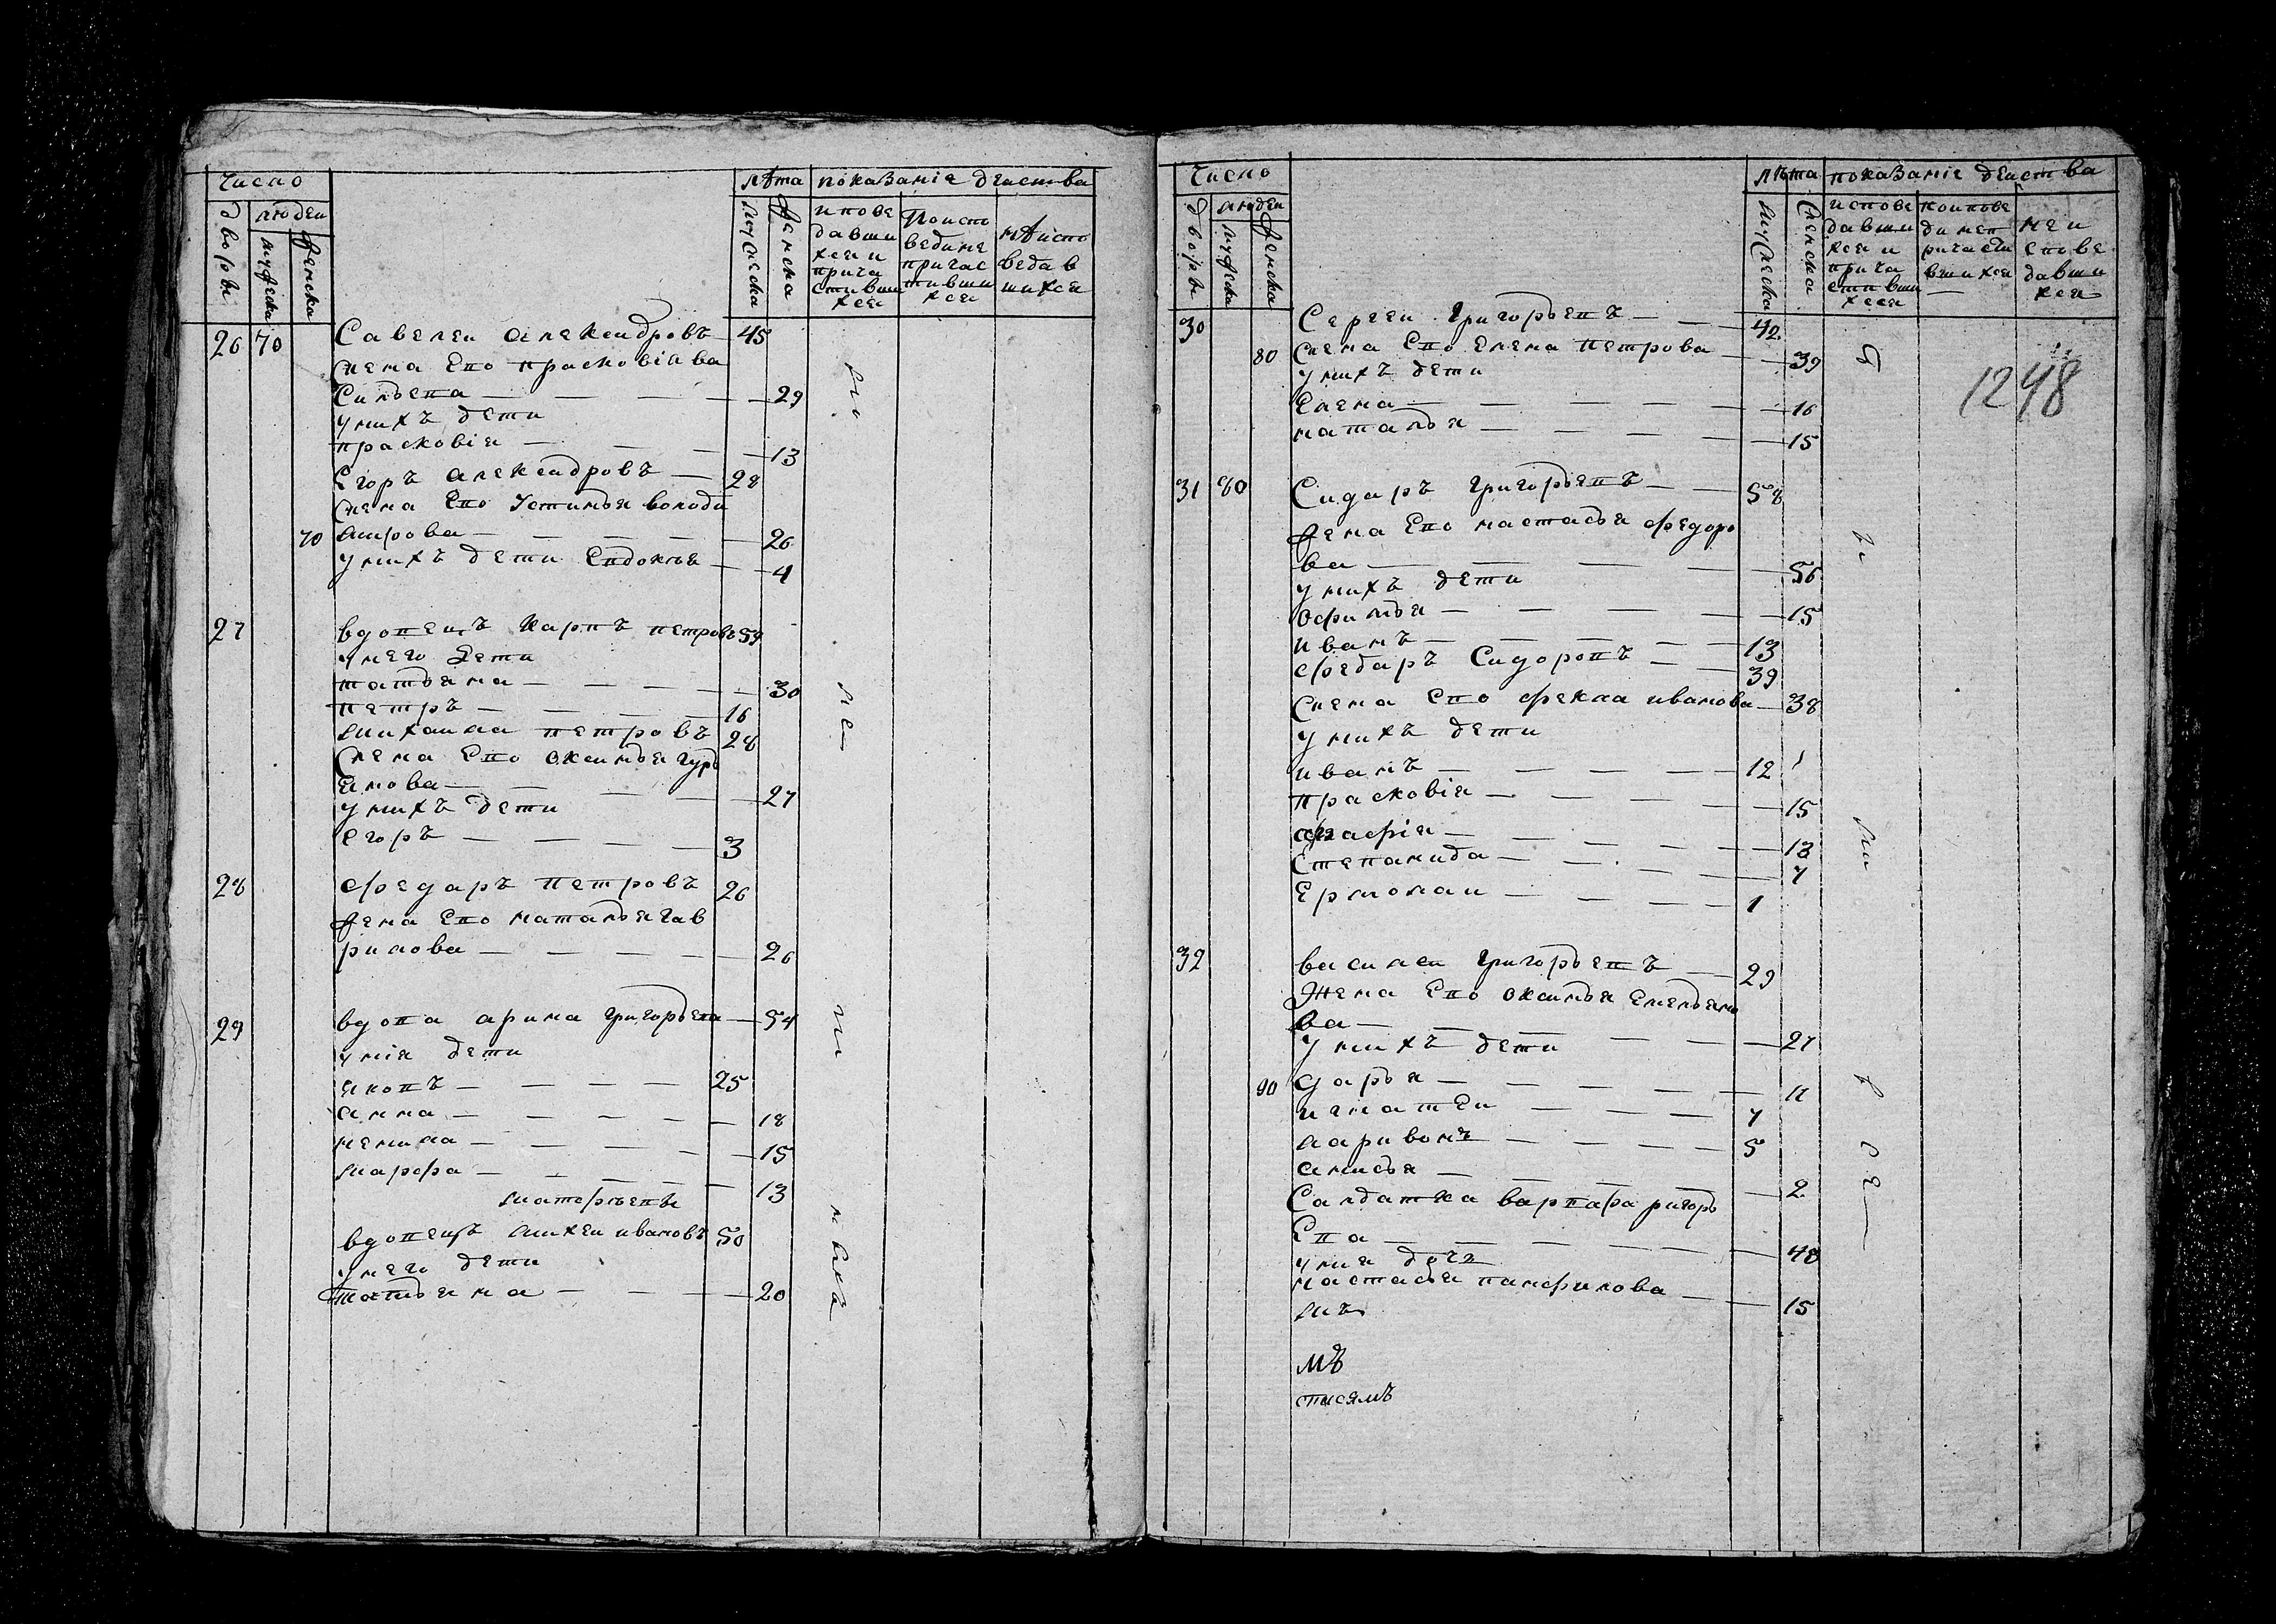 Число
лѣта показаніе деиства
дворовъ
людеи
мужеска
женска
мужеска
женска
испове
давши
хся и
прича
стивши
хся
Поиспо
ведине
причас
тивши
хся
нѣиспо
ведав
шихся
26 70 Савелеи Александровъ 45
жена Ево прасковія ва
сильева 29
у нихъ дети
прасковія 13
Егоръ Александровъ 28
жена Ево Устинья володи
70 мирова 26
у нихъ дети Евдокея 4
27 вдовецъ Карпъ петровъ 59
у него дети
татьяна 30
петръ 16
михаила петровъ 28
жена Ево Оксинья гурь
янова 27
у нихъ дети
егоръ 3
28 федаръ петровъ 26
жена Ево наталья гав
рилова 26
29 вдова арина григорьева 54
у нія дети
яковъ 25
анна 18
ненила 15
марфа 13
вдовецъ михеи ивановъ 50
у него дети
татьяна 20
Число
лѣта показаніе деиства
дворовъ
людеи
мужеска
женска
мужеска
женска
испове
давши
хся и
прича
стивши
хся
поиспове
ди неп
ричасти
вшихся
неи
спове
давши
хся
1248
30 Сергеи григорьевъ 42
80 жена Ево Елена петрова 39
у нихъ дети
Елена 16
наталья 15
31 80 Сидаръ григорьевъ 58
жена Ево настасья федоро
ва 56
у нихъ дети
офимья 15
иванъ 13
федаръ Сидоровъ 39
жена Ево фекла иванова 38
у нихъ дети
иванъ 12
прасковія 15
агафія 13
Степанида 7
Ермолаи 1
32 василеи григорьевъ 29
Жена Ево Оксинья Емельяно
ва
у нихъ дети 27
90 дарья 11
игнатеи 7
ларивонъ 5
анисья 2
Салдатка варвара григорь
Ева 48
у нія дочь
настасья панфилова 15
мъ
мъ